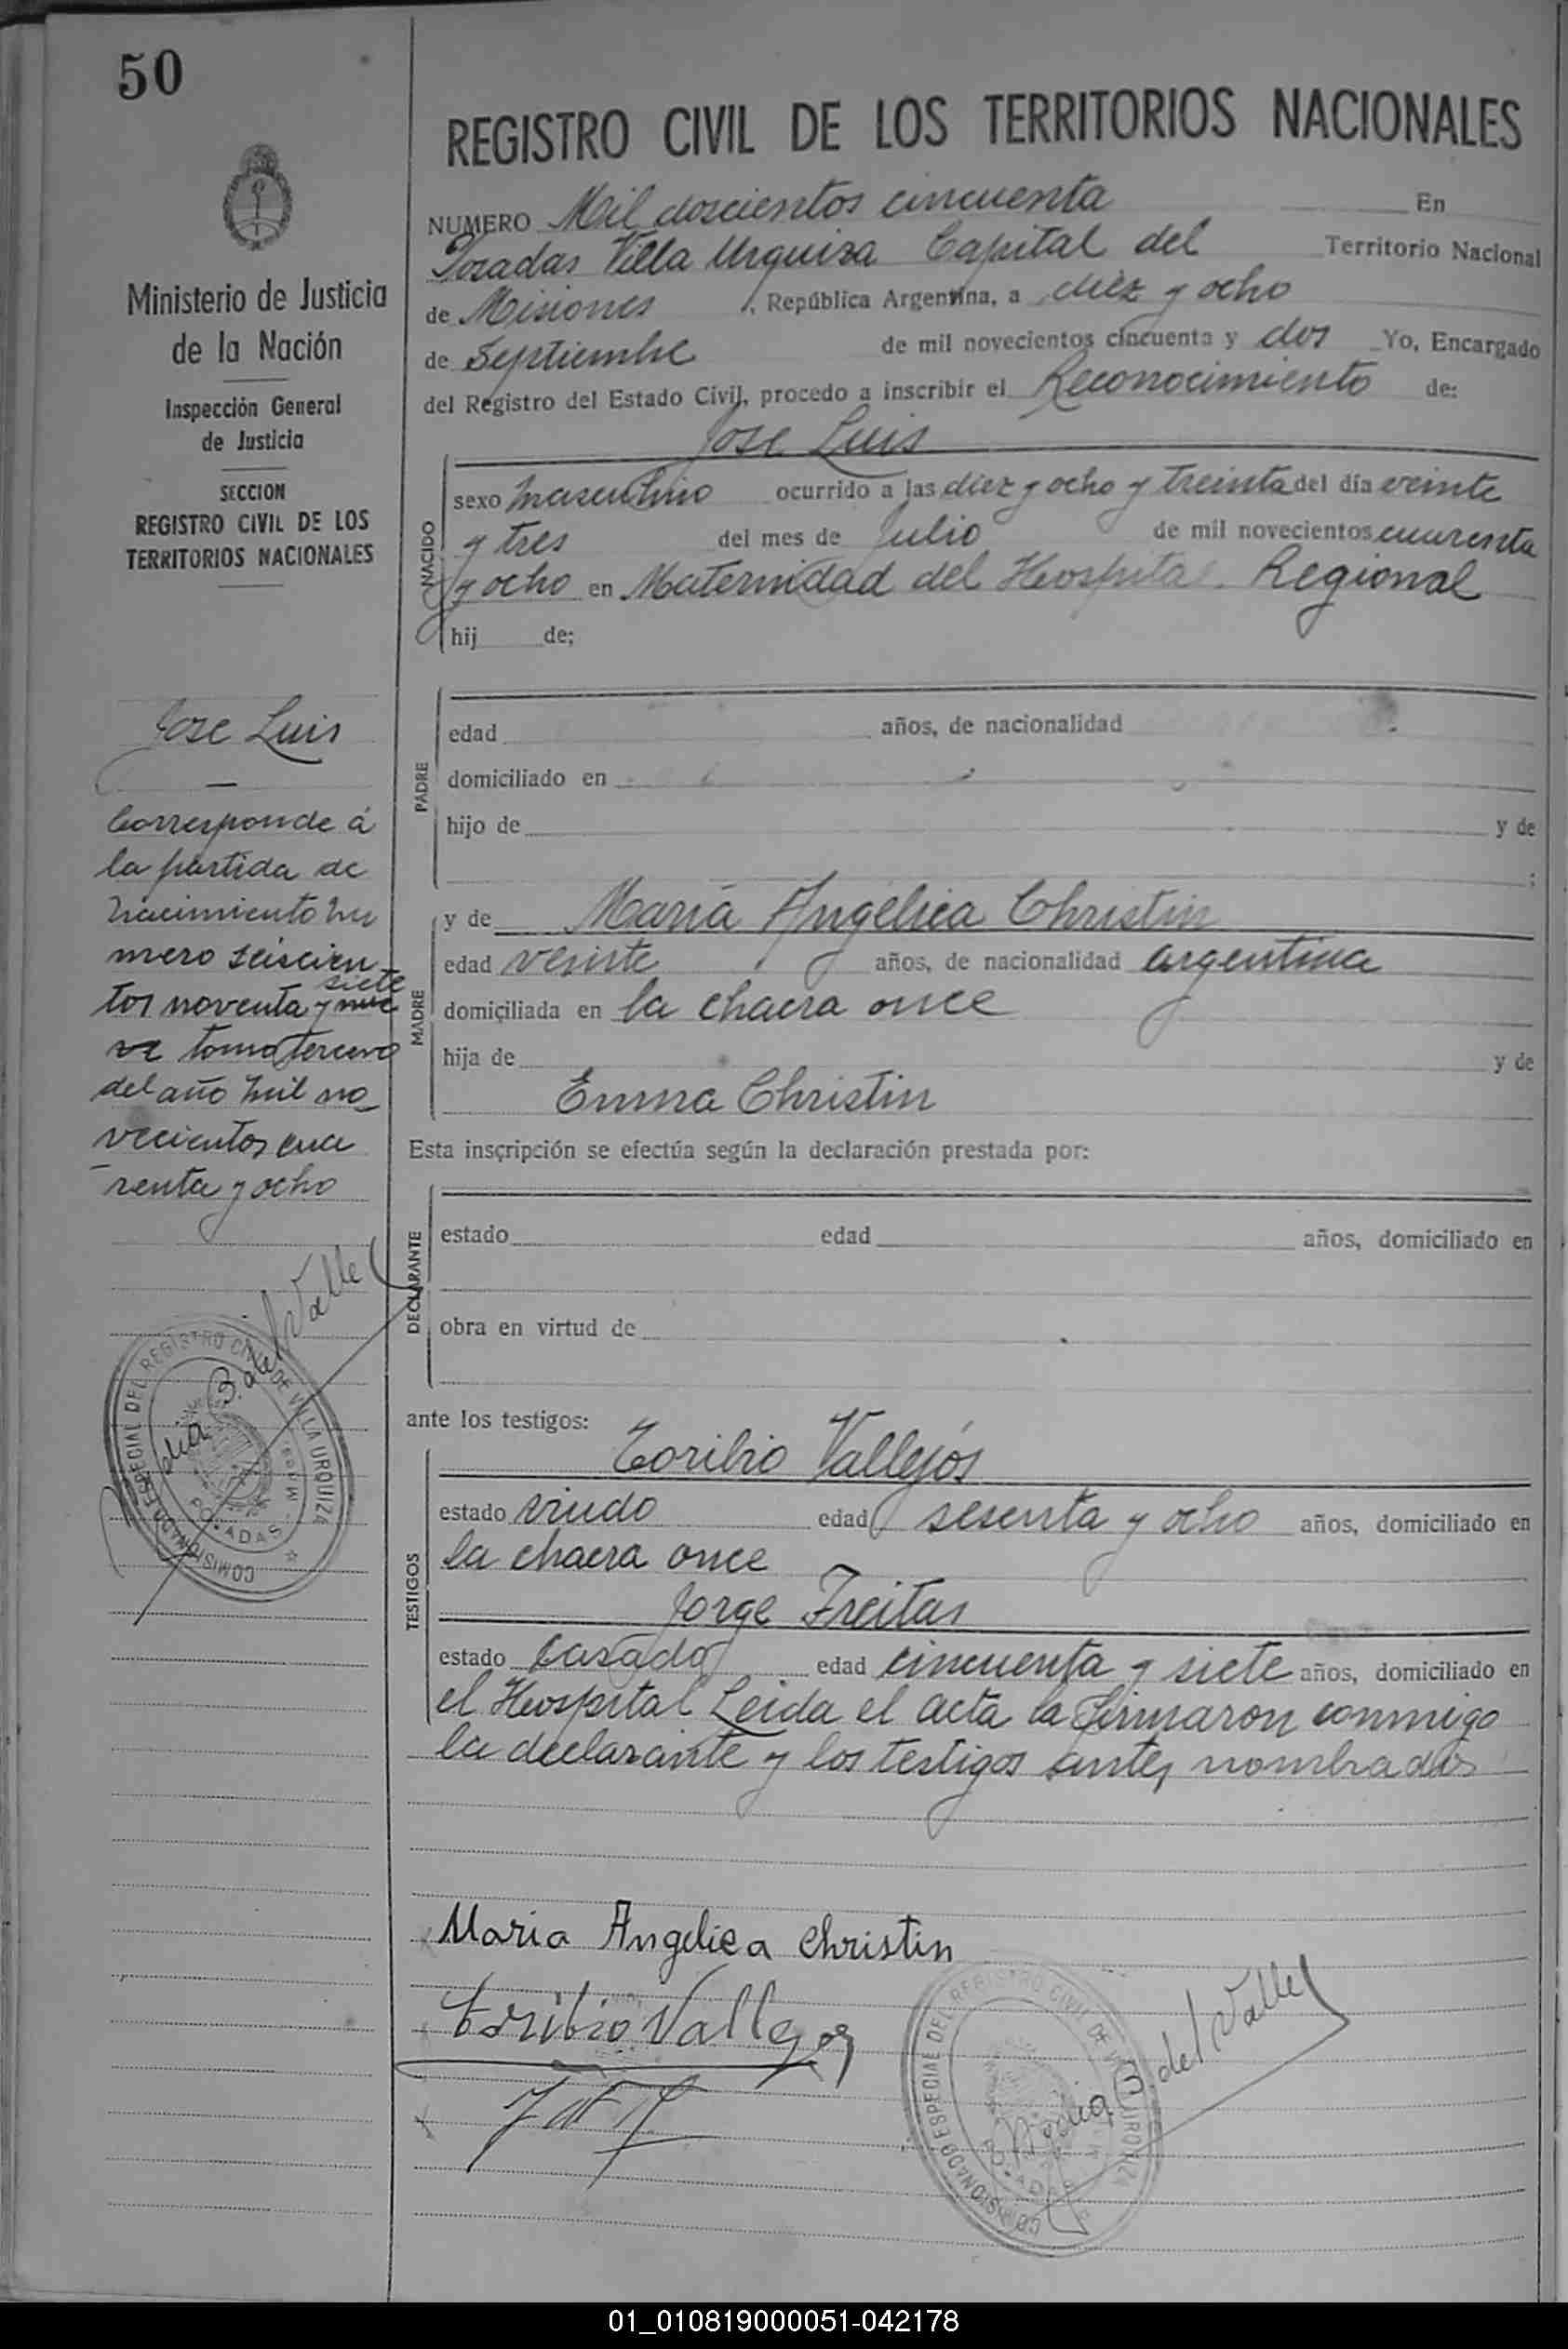 50
REGISTRO CIVIL DE LOS TERRITORIOS NACIONALES
Ministerio de Justicia
de la Nación
Inspección General
de Justicia
SECCION
REGISTRO CIVIL DE LOS
TERRITORIOS NACIONALES
Jose Luis
Corresponde á
la partida de
nacimiento nu
mero seiscien
siete
tos noventa y nue
ve tomo tercero
del año mil no
vecientos cua
renta y ocho
B. del Valle
COMISIONADO ESPECIAL DEL REGISTRO CIVIL DE VILLA URQUIZA
POSADAS
NUMERO Mil doscientos cincuenta En
Posadas Villa Urquiza Capital del Territorio Nacional
de Misiones, República Argentina, a diez y ocho
de Septiembre de mil novecientos cincuenta y dos Yo, Encargado
del Registro del Estado Civil, procedo a inscribir el Reconocimiento de:
Jose Luis
NACIDO
sexo masculino ocurrido a las diez y ocho y treinta del día veinte
y tres del mes de Julio de mil novecientos cuarenta
y ocho en Maternidad del Hospital Regional
hij de;
PADRE
edad años, de nacionalidad
domiciliado en
hijo de y de
;
MADRE
y de María Angélica Christin
edad veinte años, de nacionalidad argentina
domiciliada en la chacra once
hija de y de
Emma Christin
Esta inscripción se efectúa según la declaración prestada por:
DECLARANTE
estado edad años, domiciliado en
obra en virtud de
ante los testigos:
TESTIGOS
Toribio Vallejós
estado viudo edad sesenta y ocho años, domiciliado en
la chacra once
Jorge Freitas
estado casado edad cincuenta y siete años, domiciliado en
el Hospital Leida el acta la firmaron conmigo
la declarante y los testigos antes nombrados
Maria Angelica Christin
Toribio Vallejos
COMISIONADO ESPECIAL DEL REGISTRO CIVIL DE VILLA URQUIZA
POSADAS
B. del Valle
01_010819000051-042178